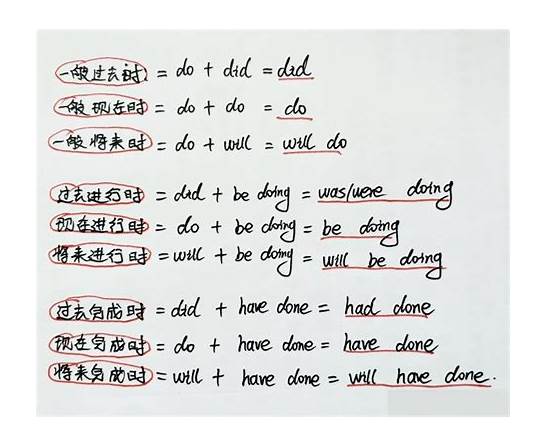 一般过去时 = do + did = did
一般现在时 = do + do = do
一般将来时 = do + will = will do
过去进行时 = did + be doing = was/were doing
现在进行时 = do + be doing = be doing
将来进行时 = will + be doing = will be doing
过去完成时 = did + have done = had done
现在完成时 = do + have done = have done
将来完成时 = will + have done = will have done.